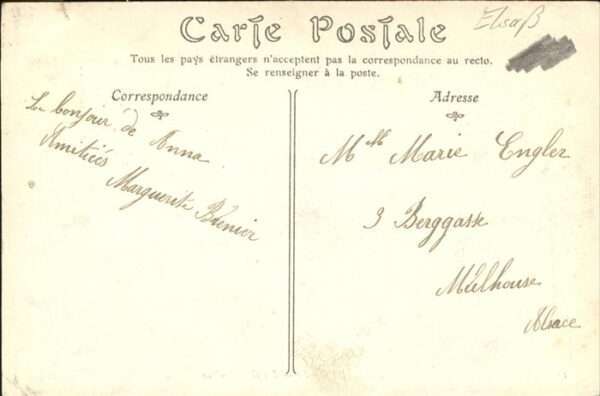 Elsaß
Carte Postale
Tous les pays étrangers n'acceptent pas la correspondance au recto.
Se renseigner à la poste.
Correspondance
Le bonjour de Anna
Amitiées
Marguerite
Adresse
Mlle Marie Engler
3 Berggasse
Mülhouse
Alsace